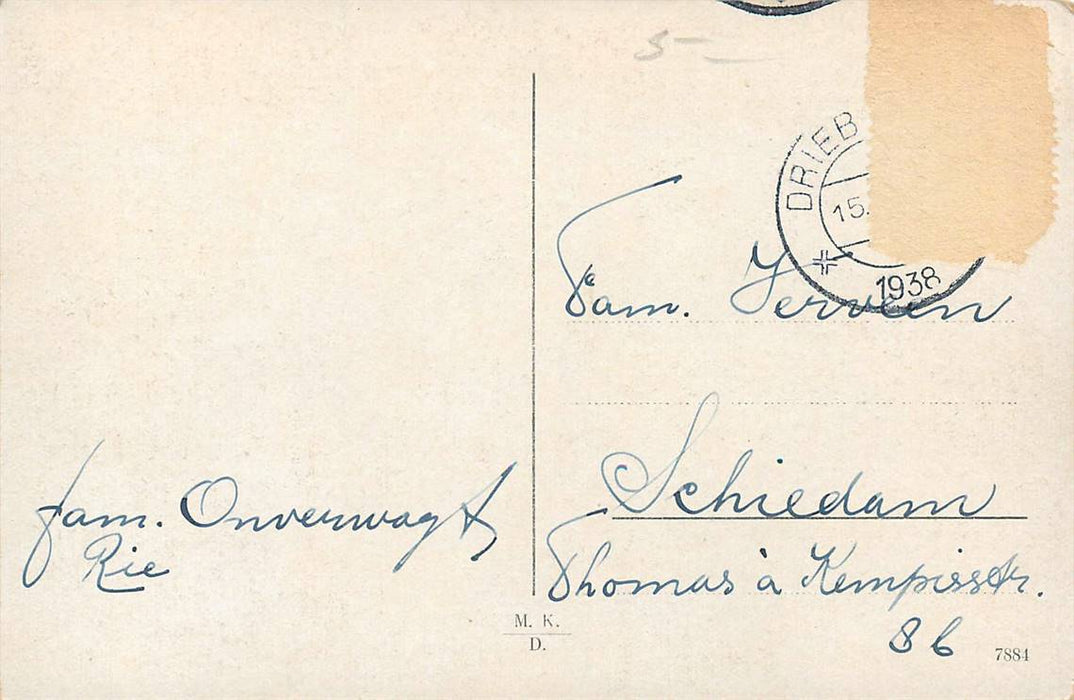 5-
DRIEB
15.
1938
Fam. Terveen
Schiedam
Thomas à Kempisstr.
86
fam. Onverwagt
Rie
M. K.
D.
7884